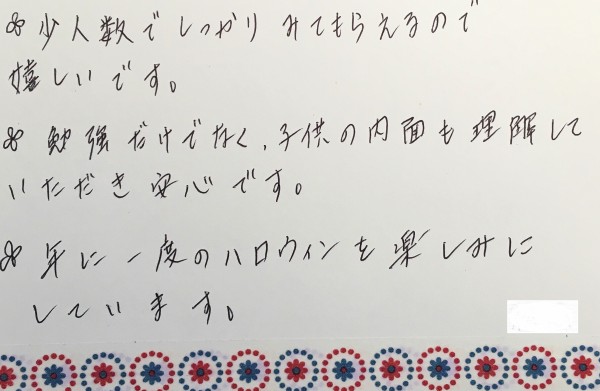 ✽少人数でしっかりみてもらえるので
嬉しいです。
✽勉強だけでなく、子供の内面も理解して
いただき安心です。
✽年に一度のハロウィンを楽しみに
しています。